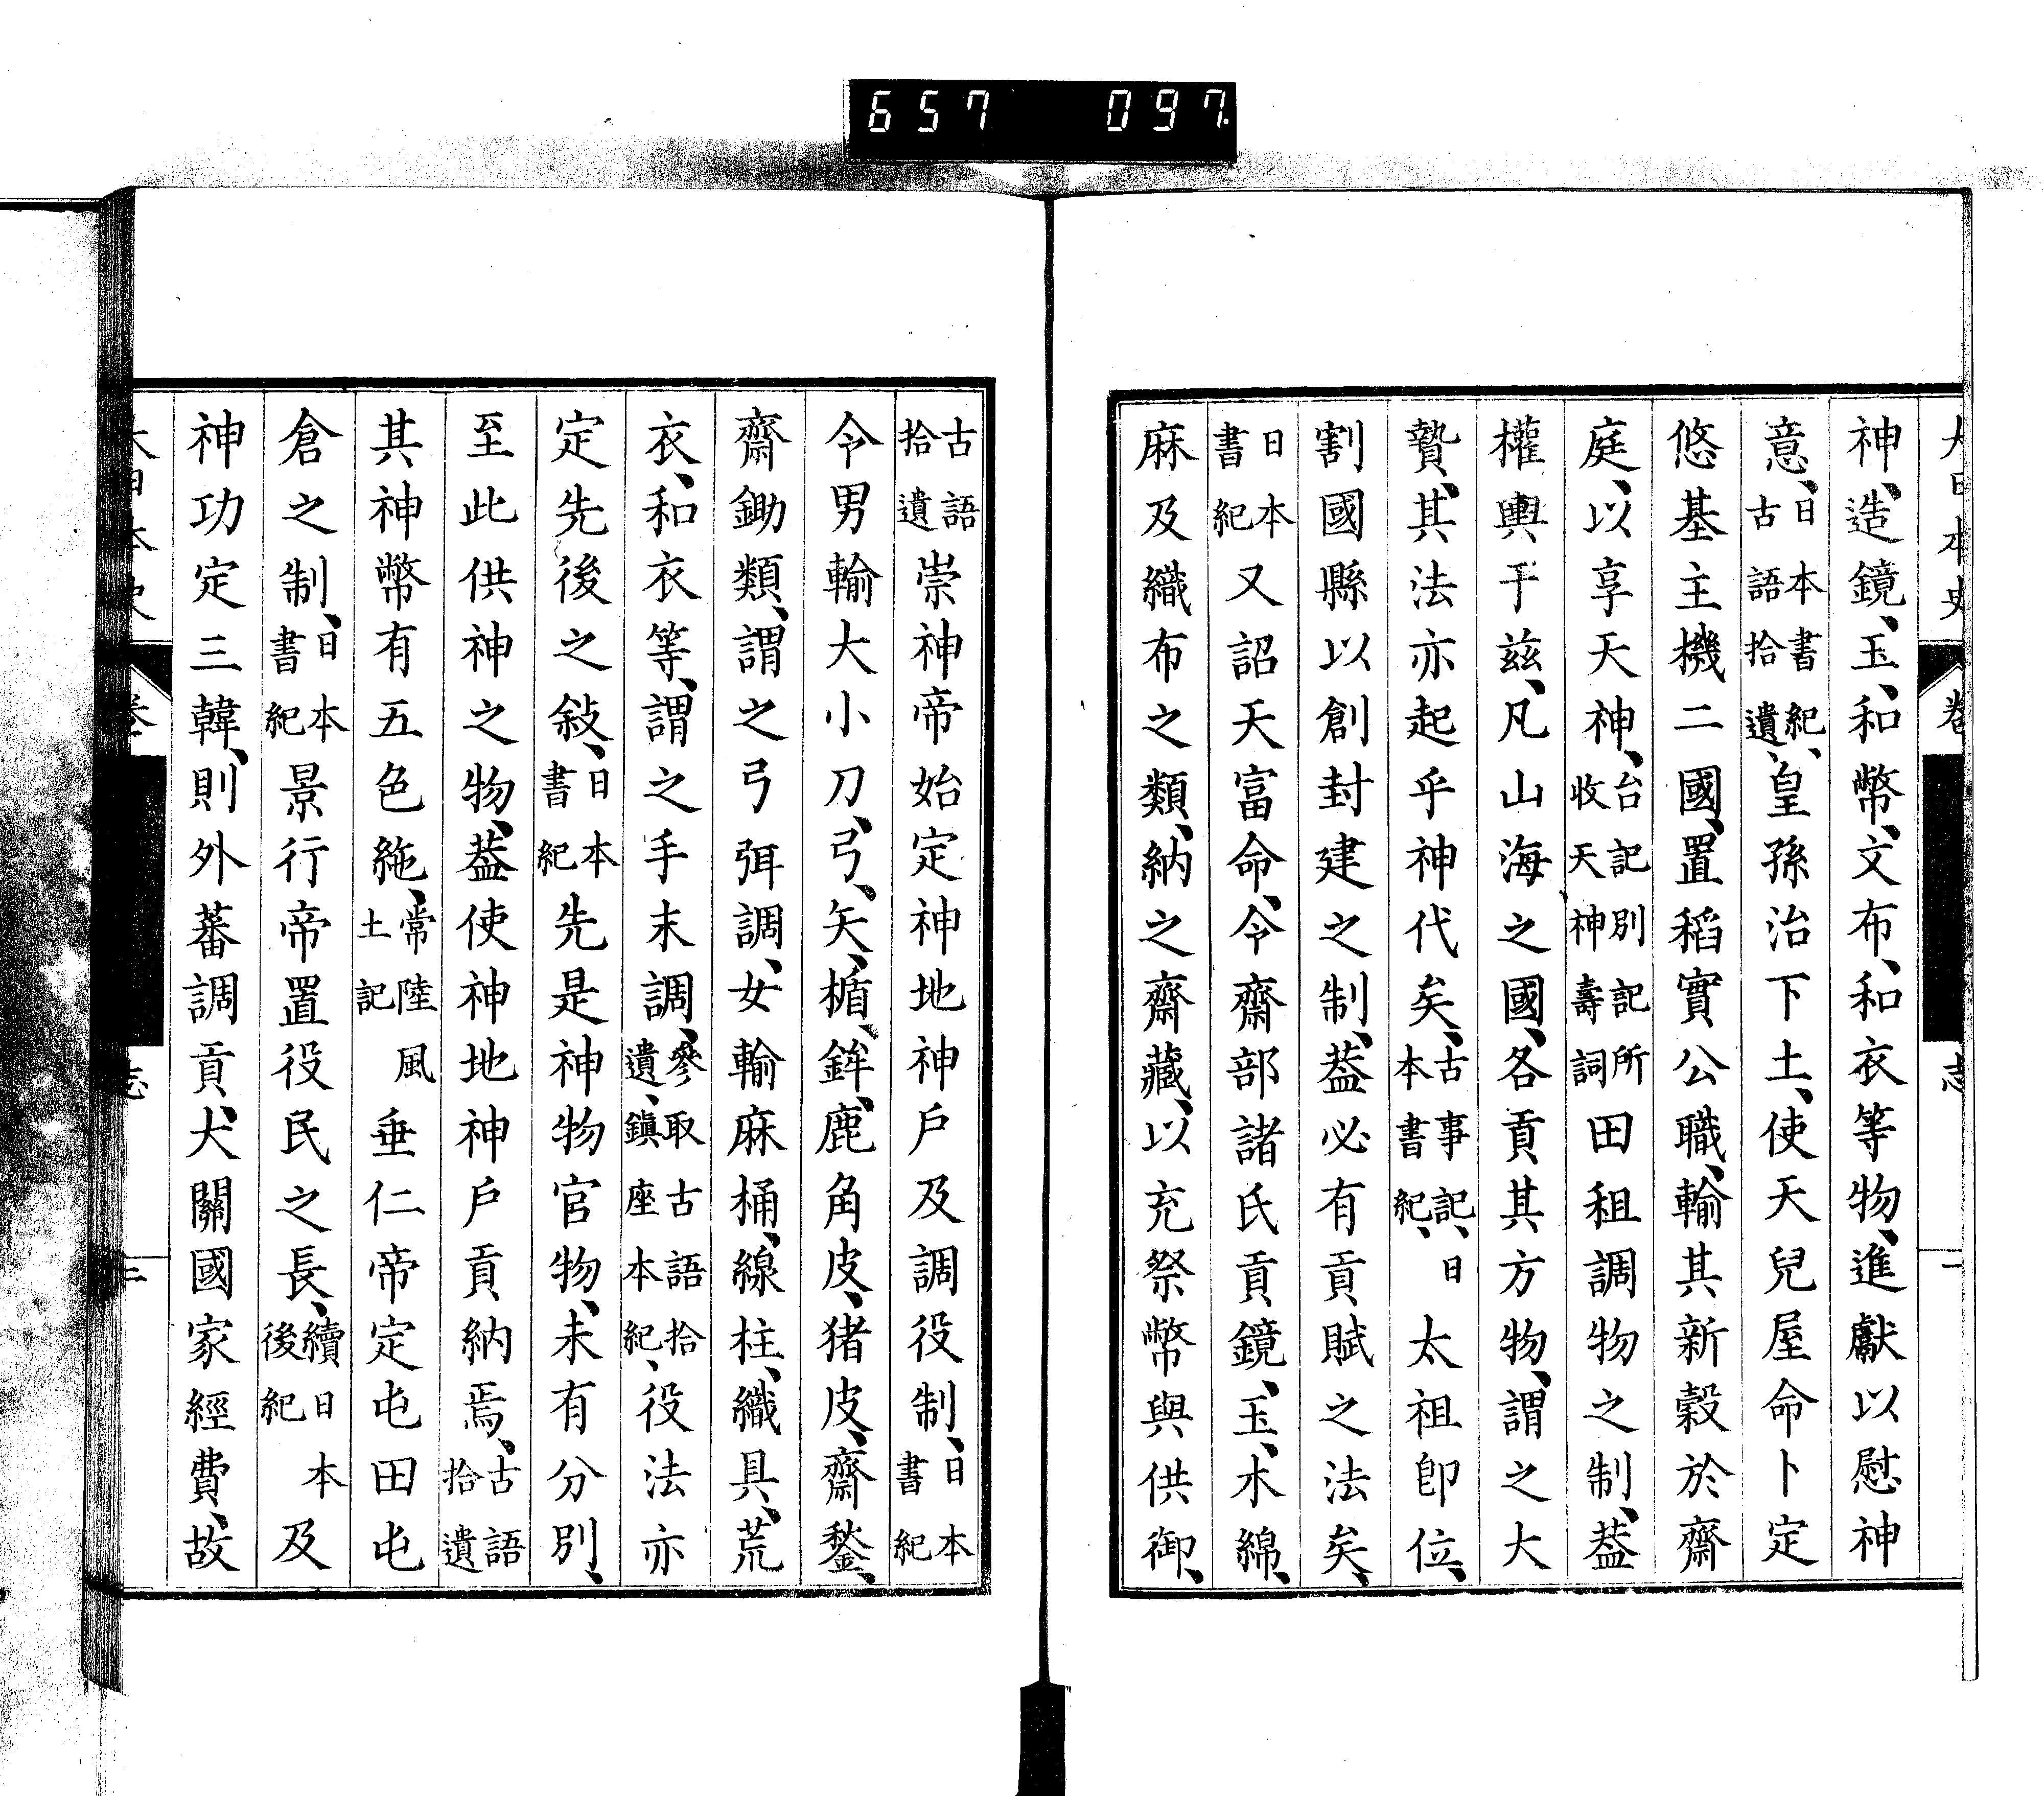 657 097.
大日本史 卷 志 二
神、造鏡、玉、和幣、文布、和衣等物、進獻以慰神
意、日本書紀、古語拾遺、皇孫治下土、使天兒屋命卜定
悠基主機二國、置稻實公職、輸其新穀於齋
庭、以享天神、台記別記所收天神壽詞田租調物之制、葢
權輿于兹、凡山海之國、各貢其方物、謂之大
贄、其法亦起乎神代矣、古事記、日本書紀、太祖卽位、
割國縣以創封建之制、葢必有貢賦之法矣、
日本書紀又詔天富命、令齋部諸氏貢鏡、玉、木綿、
麻及織布之類、納之齋藏、以充祭幣與供御、
古語拾遺崇神帝始定神地神戶及調役制、日本書紀
令男輸大小刀、弓、矢、楯、鉾、鹿角皮、猪皮、齋鍫、
齋鋤類、謂之弓弭調、女輸麻桶、線柱、織具、荒
衣、和衣等、謂之手末調、參取古語拾遺、鎭座本紀、役法亦
定先後之敍、日本書紀先是神物官物、未有分別、
至此供神之物、葢使神地神戶貢納焉、古語拾遺
其神幣有五色絁、常陸風土記垂仁帝定屯田屯
倉之制、日本書紀景行帝置役民之長、續日本後紀及
神功定三韓、則外蕃調貢、大關國家經費、故
大日本史 卷 志 二